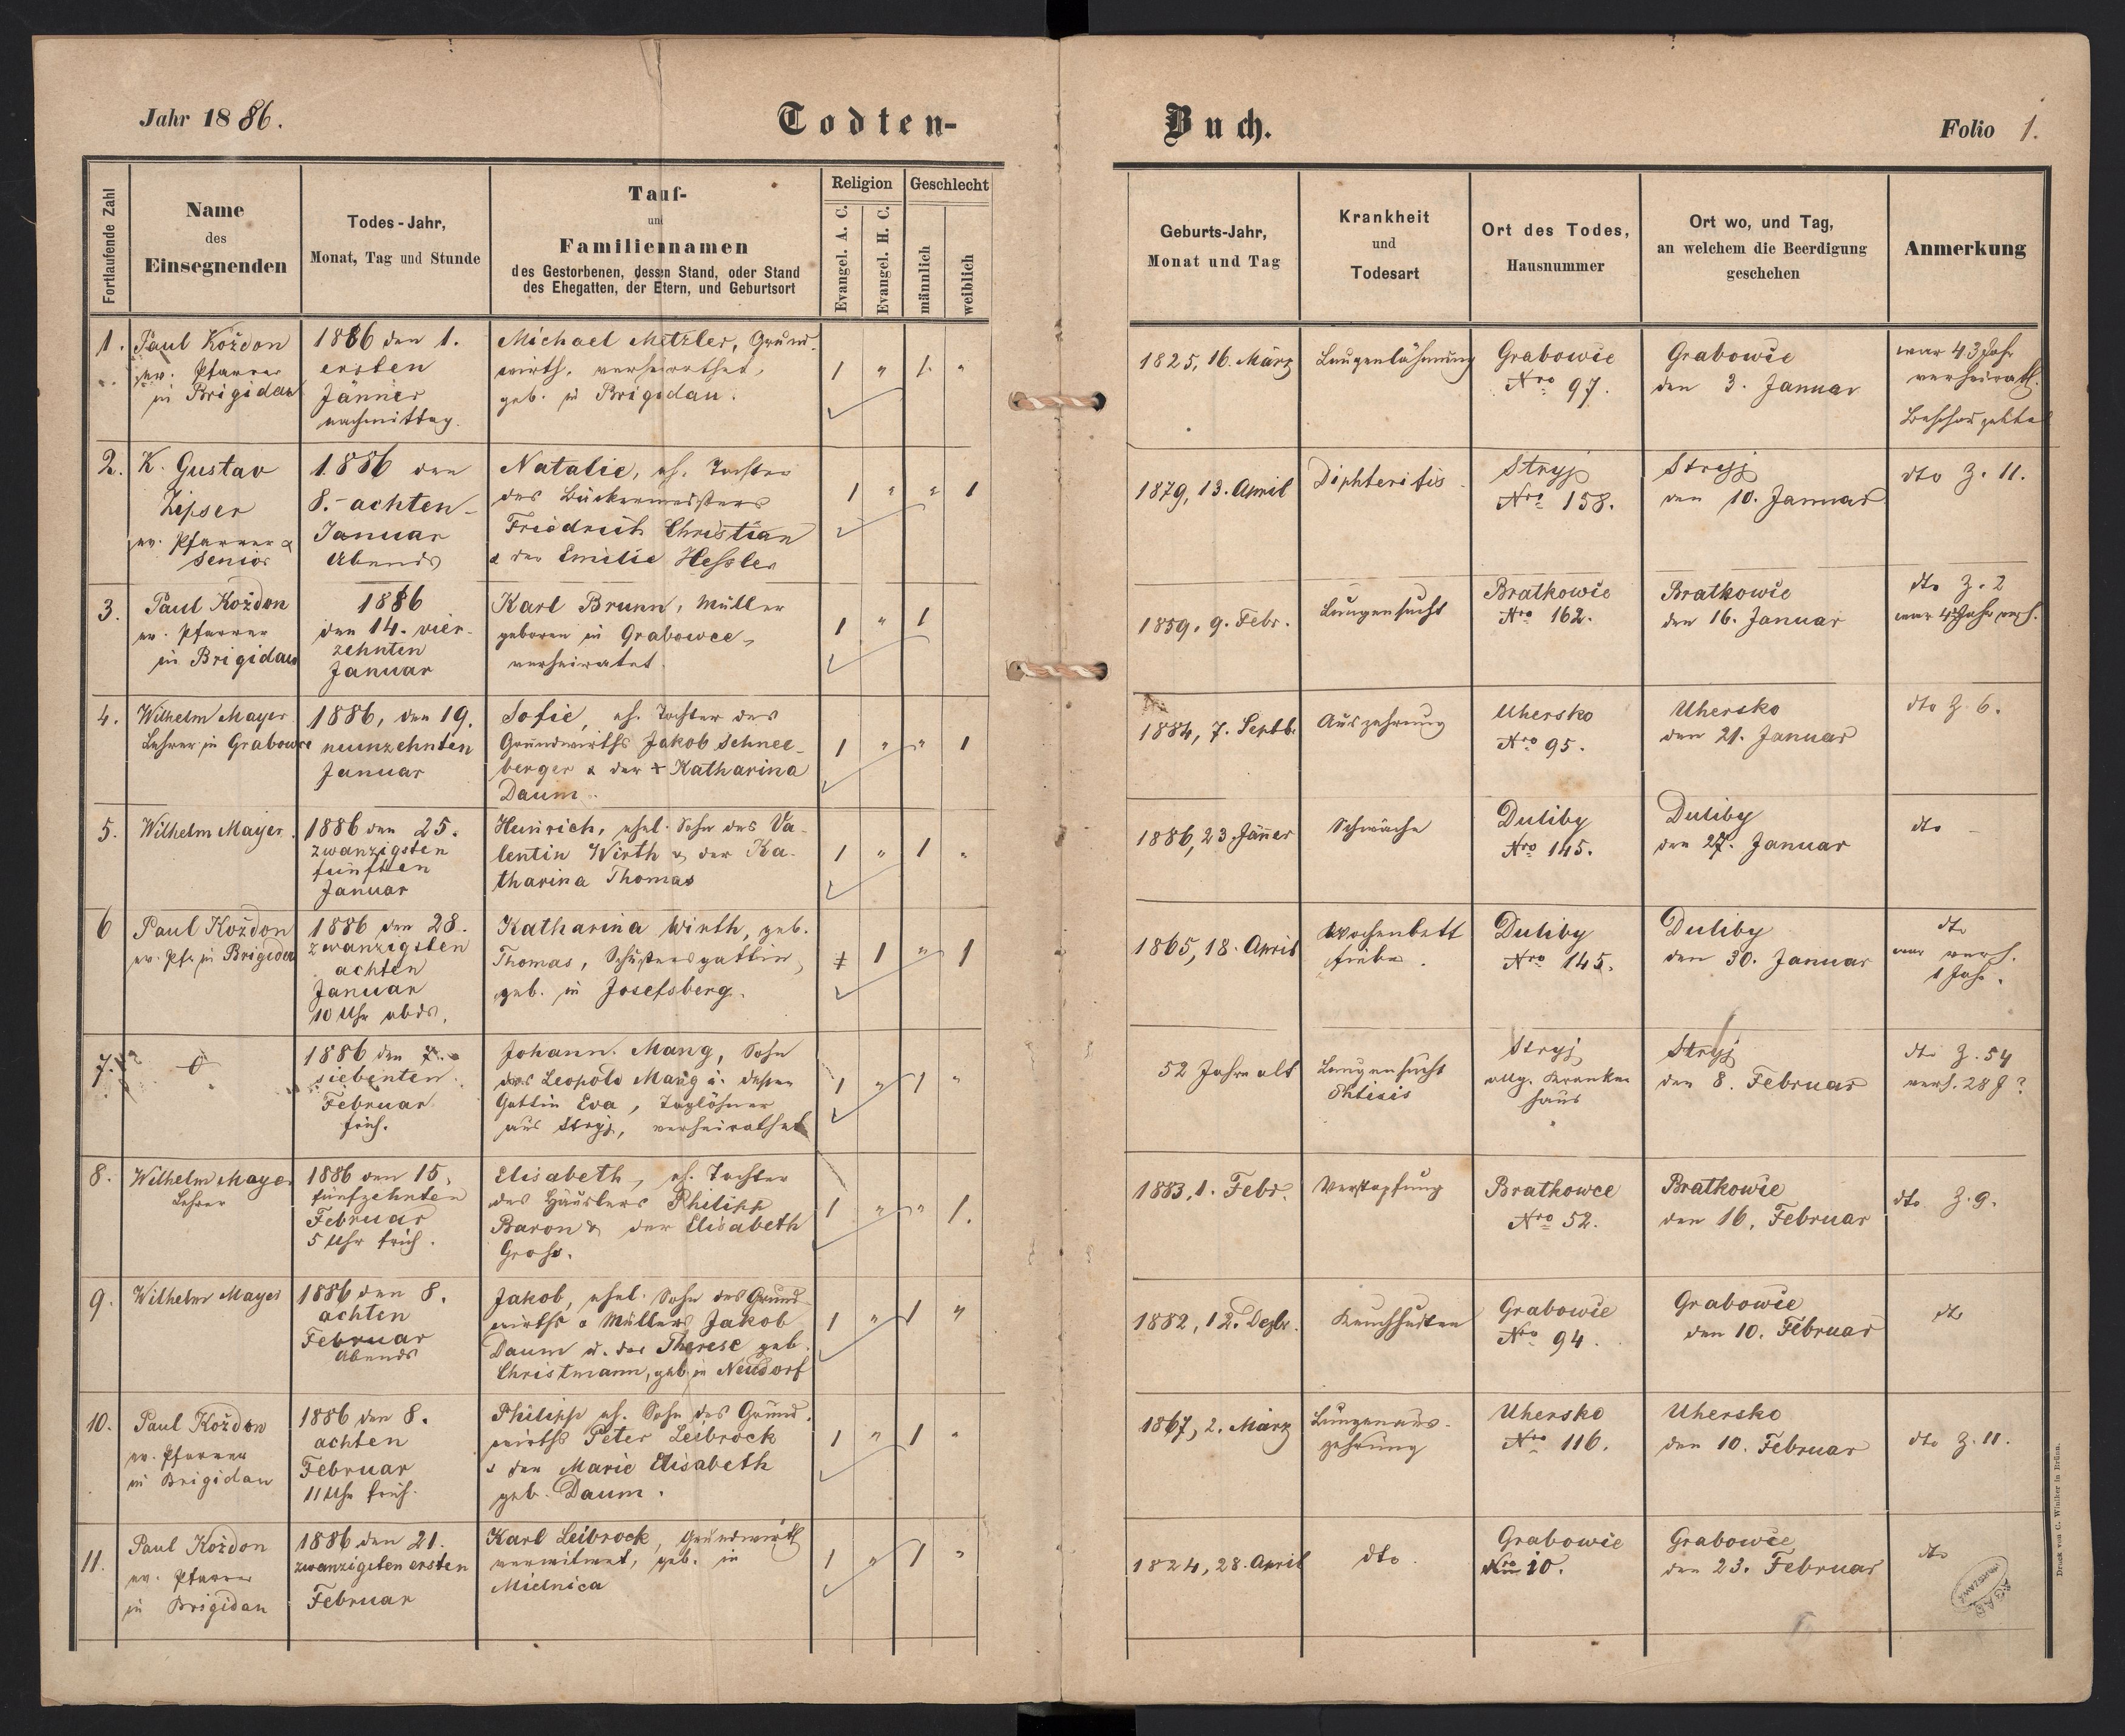 Jahr 1886.
Todten-
Buch.
Folio 1.
Fortlaufende Zahl
Name
des
Einsegnenden
Todes-Jahr,
Monat, Tag und Stunde
Tauf-
und
Familiennamen
des Gestorbenen, dessen Stand, oder Stand
des Ehegatten, der Eltern, und Geburtsort
Religion
Evangel. A. C.
Evangel. H. C.
Geschlecht
männlich
weiblich
Geburts-Jahr,
Monat und Tag
Krankheit
und
Todesart
Ort des Todes,
Hausnummer
Ort wo, und Tag,
an welchem die Beerdigung
geschehen
Anmerkung
1.
Paul Koždon
ev. Pfarrer
in Brigidau
1886 den 1.
ersten
Jänner
nachmittag.
Michael Metzler, Grund-
wirth, verheirathet,
geb. in Brigidau.
1 " 1. "
1825, 16. März
Lungenlähmung
Grabowie
Nro 97.
Grabowie
den 3. Januar
war 43 Jahr
verheirath.
2.
K. Gustav
Zipser
ev. Pfarrer &
Senior
1886 den
8. achten
Januar
Abends
Natalie, eh. Tochter
des Bäckermeisters
Friedrich Christian
& der Emilie Hessler
1 " " 1
1879, 13. April
Diphteritis
Stryj
Nro 158.
Stryj
den 10. Januar
dto Z. 11.
3.
Paul Koždon
ev. Pfarrer
in Brigidau
1886
den 14. vier-
zehnten
Januar
Karl Brunn, Müller
geboren in Grabowce,
verheiratet.
1 " 1
1859, 9. Febr.
Lungensucht
Bratkowie
Nro 162.
Bratkowie
den 16. Januar
dto Z. 2
4.
Wilhelm Mayer
Lehrer in Grabowce
1886, den 19.
neunzehnten
Januar
Sofie, eh. Tochter des
Grundwirths Jakob Schnee-
berger & der + Katharina
Daum.
1 " " 1
1884, 7. Septb.
Auszehrung
Uhersko
Nro 95.
Uhersko
den 21. Januar
dto Z 6.
5.
Wilhelm Mayer.
1886 den 25.
zwanzigsten
fünften
Januar
Heinrich, ehel. Sohn des Va-
lentin Wirth & der Ka-
tharina Thomas
1 " 1 "
1886, 23 Jänner
Schwäche
Duliby
Nro 145.
Duliby
den 27. Januar
dto
6
Paul Koždon
ev. Pfr in Brigidau
1886 den 28.
zwanzigsten
achten
Januar
10 Uhr abds.
Katharina Wirth, geb.
Thomas, Schustersgattin,
geb. in Josefsberg.
1 1 " 1
1865, 18. April
Wochenbett
fieber.
Duliby
Nro 145.
Duliby
den 30. Januar
dto
war verh.
1 Jahr.
7.
1886 den 7.
siebenten
Februar
früh.
Johann Mang, Sohn
des Leopold Mang u. dessen
Gattin Eva, Taglöhner
aus Stryj, verheirathet
1 " 1 "
52 Jahre alt
Lungensucht
Phtisis
Stryj
allg. Kranken
haus
Stryj
den 8. Februar
dto Z. 54
verh. 28 J?
8.
Wilhelm Mayer
Lehrer
1886 den 15.
fünfzehnten
Februar
5 Uhr früh.
Elisabeth, eh. Tochter
des Häuslers Philipp
Baron & der Elisabeth
Gross.
1 " " 1.
1883, 1. Febr.
Verstopfung
Bratkowce
Nro 52.
Bratkowie
den 16. Februar
dto Z. 9.
9.
Wilhelm Mayer
1886 den 8.
achten
Februar
Abends
Jakob, ehel. Sohn des Grund-
wirths & Müllers Jakob
Daum u. der Therese geb.
Christmann, geb. in Neudorf
1 " 1 "
1882, 12. Dezbr.
Keuchhusten
Grabowie
Nro 94.
Grabowie
den 10. Februar
dto
10.
Paul Koždon
ev. Pfarrer
in Brigidau
1886 den 8.
achten
Februar
11 Uhr früh.
Philipp eh. Sohn des Grund-
wirths Peter Leibrock
& der Marie Elisabeth
geb. Daum.
1 " 1 "
1867, 2. März
Lungenaus-
zehrung
Uhersko
Nro 116.
Uhersko
den 10. Februar
dto Z. 11.
11.
Paul Koždon
ev. Pfarrer
in Brigidau
1886 den 21.
zwanzigsten ersten
Februar
Karl Leibrock, Grundwirth
verwitwet, geb. in
Mielnica
1 " 1 "
1824, 28. April
dto.
Grabowie
Nro 10.
Grabowce
den 23. Februar
dto
Druck von C. Winiker in Brünn.